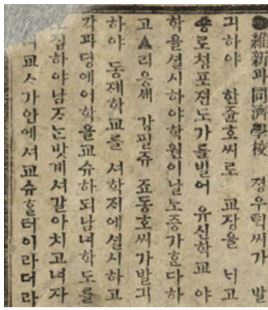 ●維新과同濟學校 경우턱씨가 발
긔하야 한쥰호씨로 교장을 넉고
죵로청포젼도가를빌어 유신학교 야
학을셜시하야학원이날노증가흔다하
고▲리은쌔 강필쥬 죠동호씨가발긔
하야 동제학교를 셔학직에셜시하고
각파뎡에어학을교슈하되남녀학도를
겸하야남ᄌᆞ는밧게셔갈아치고녀자
교ᄉᆞ가안에서교슈ᄒᆞᆯ터이라더라